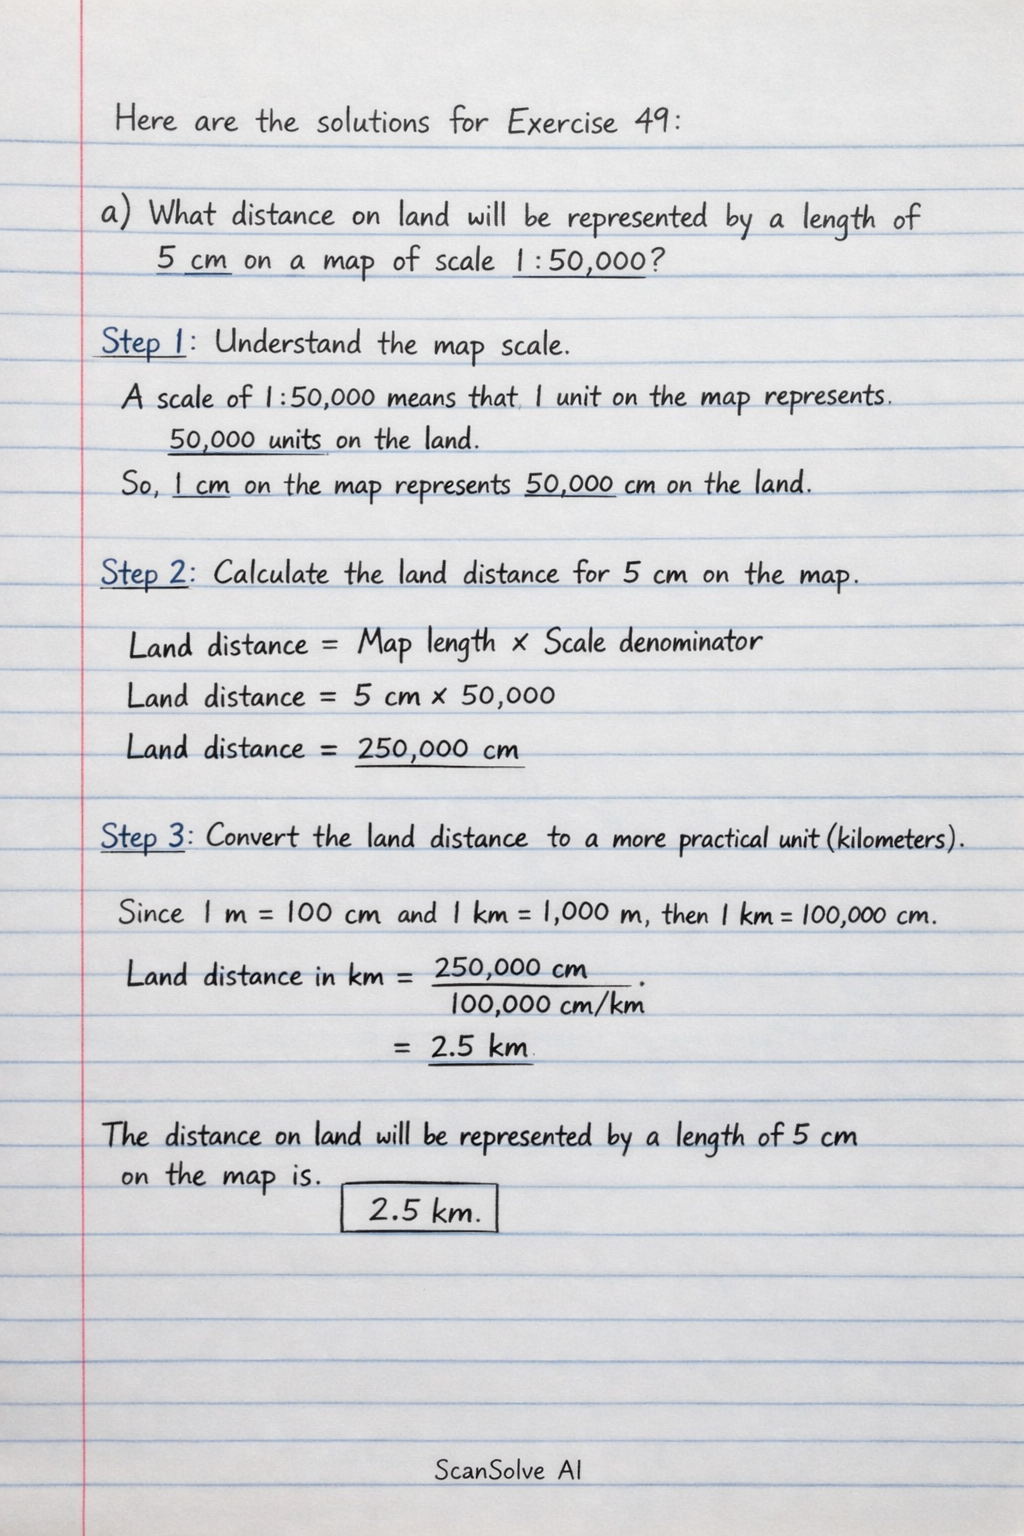 Here are the solutions for Exercise 49:
a) What distance on land will be represented by a length of
5 cm on a map of scale 1:50,000?
Step 1: Understand the map scale.
A scale of 1:50,000 means that 1 unit on the map represents.
50,000 units on the land.
So, 1 cm on the map represents 50,000 cm on the land.
Step 2: Calculate the land distance for 5 cm on the map.
Land distance = Map length × Scale denominator
Land distance = 5 cm × 50,000
Land distance = 250,000 cm
Step 3: Convert the land distance to a more practical unit (kilometers).
Since 1 m = 100 cm and 1 km = 1,000 m, then 1 km = 100,000 cm.
Land distance in km = 250,000 cm
100,000 cm/km
= 2.5 km
The distance on land will be represented by a length of 5 cm
on the map is.
2.5 km.
ScanSolve AI